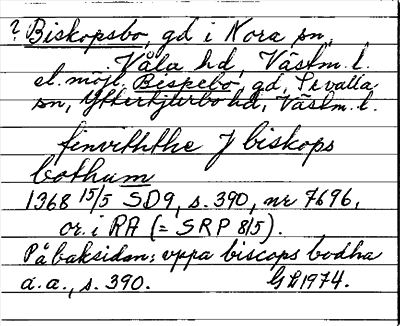 ? Biskopsbo, gd i Nora sn,
Våla hd, Västm. l.
el. möjl. Bispebo, gd, Sevalla
sn, Yttertjurbo hd, Västm. l.
finviththe J biskops
bothum
1368 15/5 SD9, s. 390, nr 7696,
or. i RA (= SRP 815).
På baksidan: vppa biscops bodha
a.a., s. 390. GL 1974.